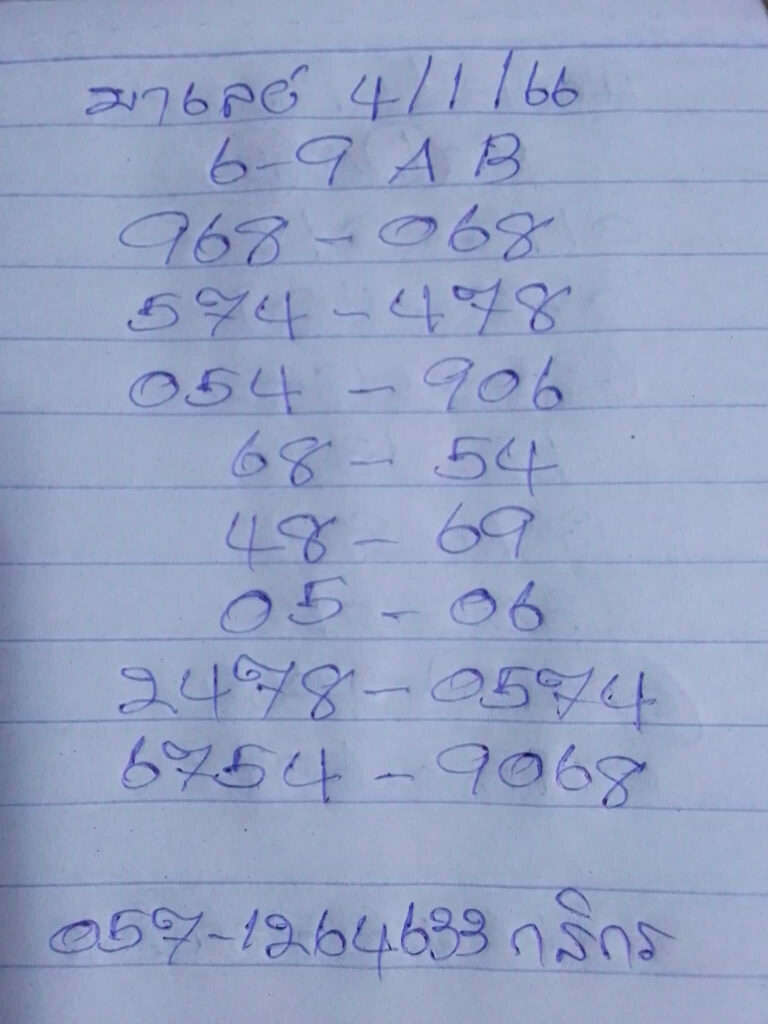 มาเลย์ 4/1/66
6-9 A B
968-068
574-478
054-906
68-54
48-69
05-06
2478-0574
6754-9068
057-1264633 กสิกร